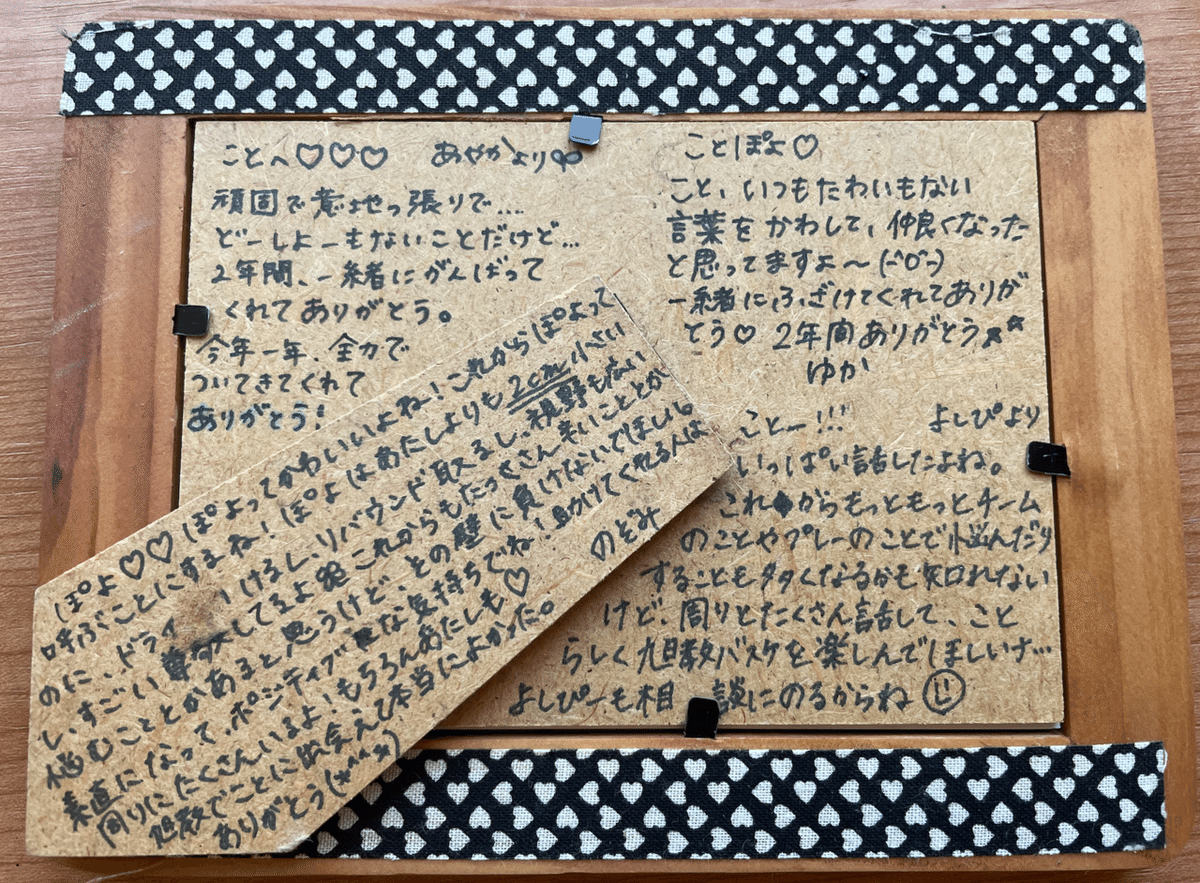 ことへ♡♡♡ あやかより
頑固で意地っ張りで…
どーしよーもないことだけど…
2年間、一緒にがんばって
くれてありがとう。
今年一年、全力で
ついてきてくれて
ありがとう!
ことぽよ♡
こと、いつもたわいもない
言葉をかわして、仲良くなった
と思ってますよ〜(^O^)
一緒にふざけてくれてありが
とう♡ 2年間ありがとう☆☆
ゆか
こと―!!! よしぴより
いっぱい話したよね。
これからもっともっとチーム
のことやプレーのことで悩んだり
することも多くなるかも知れない
けど、周りとたくさん話して、こと
らしく旭教バスケを楽しんでほしいナ…
よしぴーも相談にのるからね
ぽよ♡♡ぽよってかわいいよね!これからぽよって
呼ぶことにするね!ぽよはあたしよりも2cm小さい
のに、ドライ いけるし、リバウンド取るし、視野も広い
し、すごい尊敬してるよ これからもたっくさん辛いこととか
悩むこととかあると思うけど、その壁に負けないでほしい。
素直になって、ポジティブな気持ちでね!助けてくれる人は
周りにたくさんいるよ!もちろんあたしも♡ のぞみ
旭教でことに出会えて本当によかった。
ありがとう(*^^*)